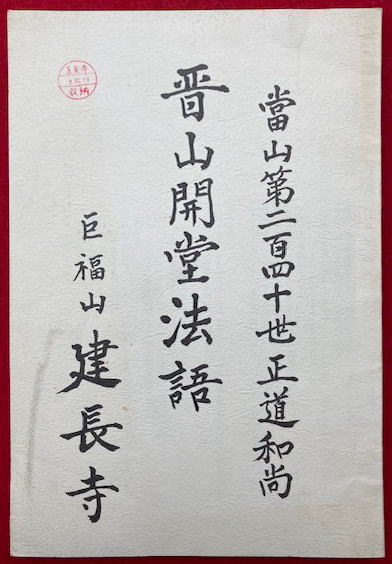 當山第二百四十世正道和尚
晋山開堂法語
巨福山 建長寺
収納